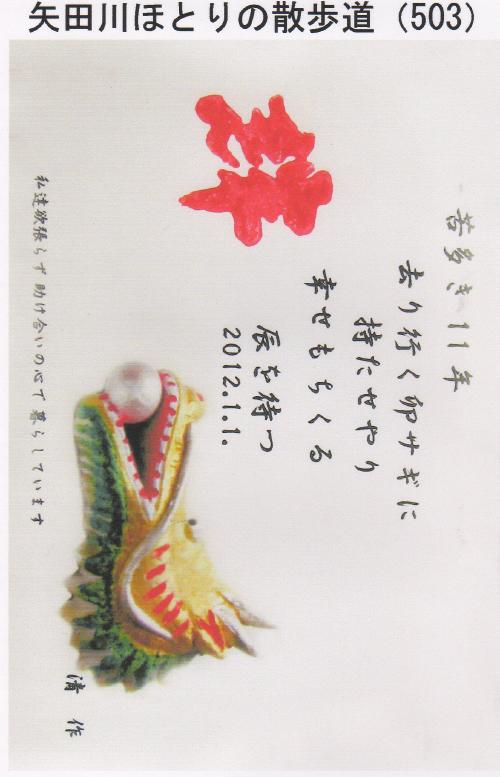 矢田川ほとりの散歩道（503）
苦多き11年
去り行く卯サギに
持たせやり
幸せもちくる
辰を待つ
2012.1.1.
私達欲張らず助け合いの心で暮らしています
清作